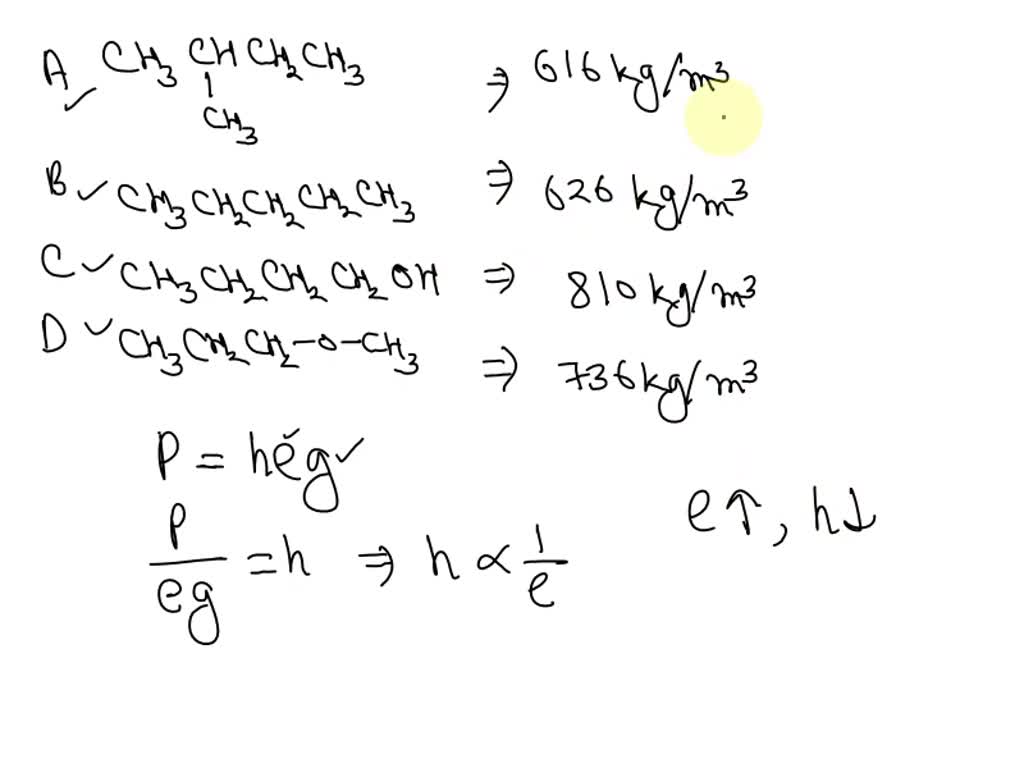 A CH3 CH CH2 CH3 ⇒ 616 kg/m³
CH3
B CH3 CH2 CH2 CH2 CH3 ⇒ 626 kg/m³
C CH3 CH2 CH2 CH2 OH ⇒ 810 kg/m³
D CH3 CH2 CH2-O-CH3 ⇒ 736 kg/m³
P = heg
P/eg = h ⇒ h ∝ 1/e
e↑, h↓